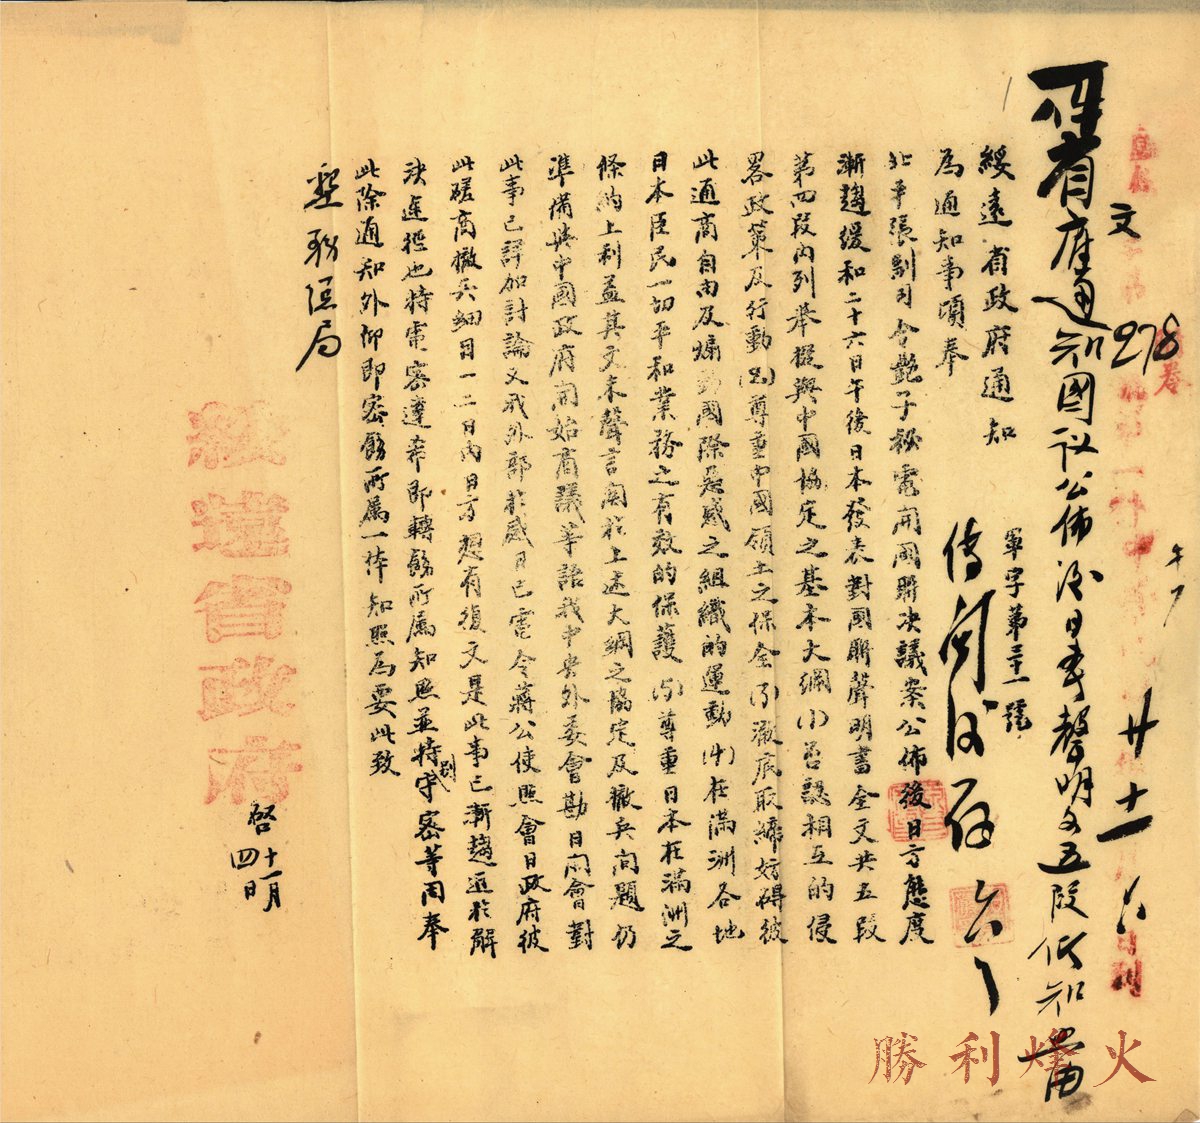 文
278
廿
十一
綏遠省政府通知
軍字第三十一號
為通知事頃奉
北平張副司令艷子秘電開國聯決議案公佈後日方態度
漸趨緩和二十六日午後日本發表對國聯聲明書全文共五段
第四段內列舉擬與中國協定之基本大綱(1)否認相互的侵
畧政策及行動(2)尊重中國領土之保全(3)澈底取締妨碍彼
此通商自由及煽動國際惡感之組織的運動(4)在滿洲各地
日本臣民一切平和業務之有效的保護(5)尊重日本在滿洲之
條約上利益其文末聲言關於上述大綱之協定及撤兵問題仍
準備與中國政府開始商議等語我中央外委會勘日開會對
此事已詳加討論又我外部於感日已電令蔣公使照會日政府彼
此磋商撤兵細目一二日內日方想有復文是此事已漸趨近於解
決途徑也特電密達希即轉飭所屬知照並特別守密等因奉
此除通知外仰即密飭所屬一体知照為要此致
墾務總局
啓
十一月
四日
綏遠省政府
勝利烽火